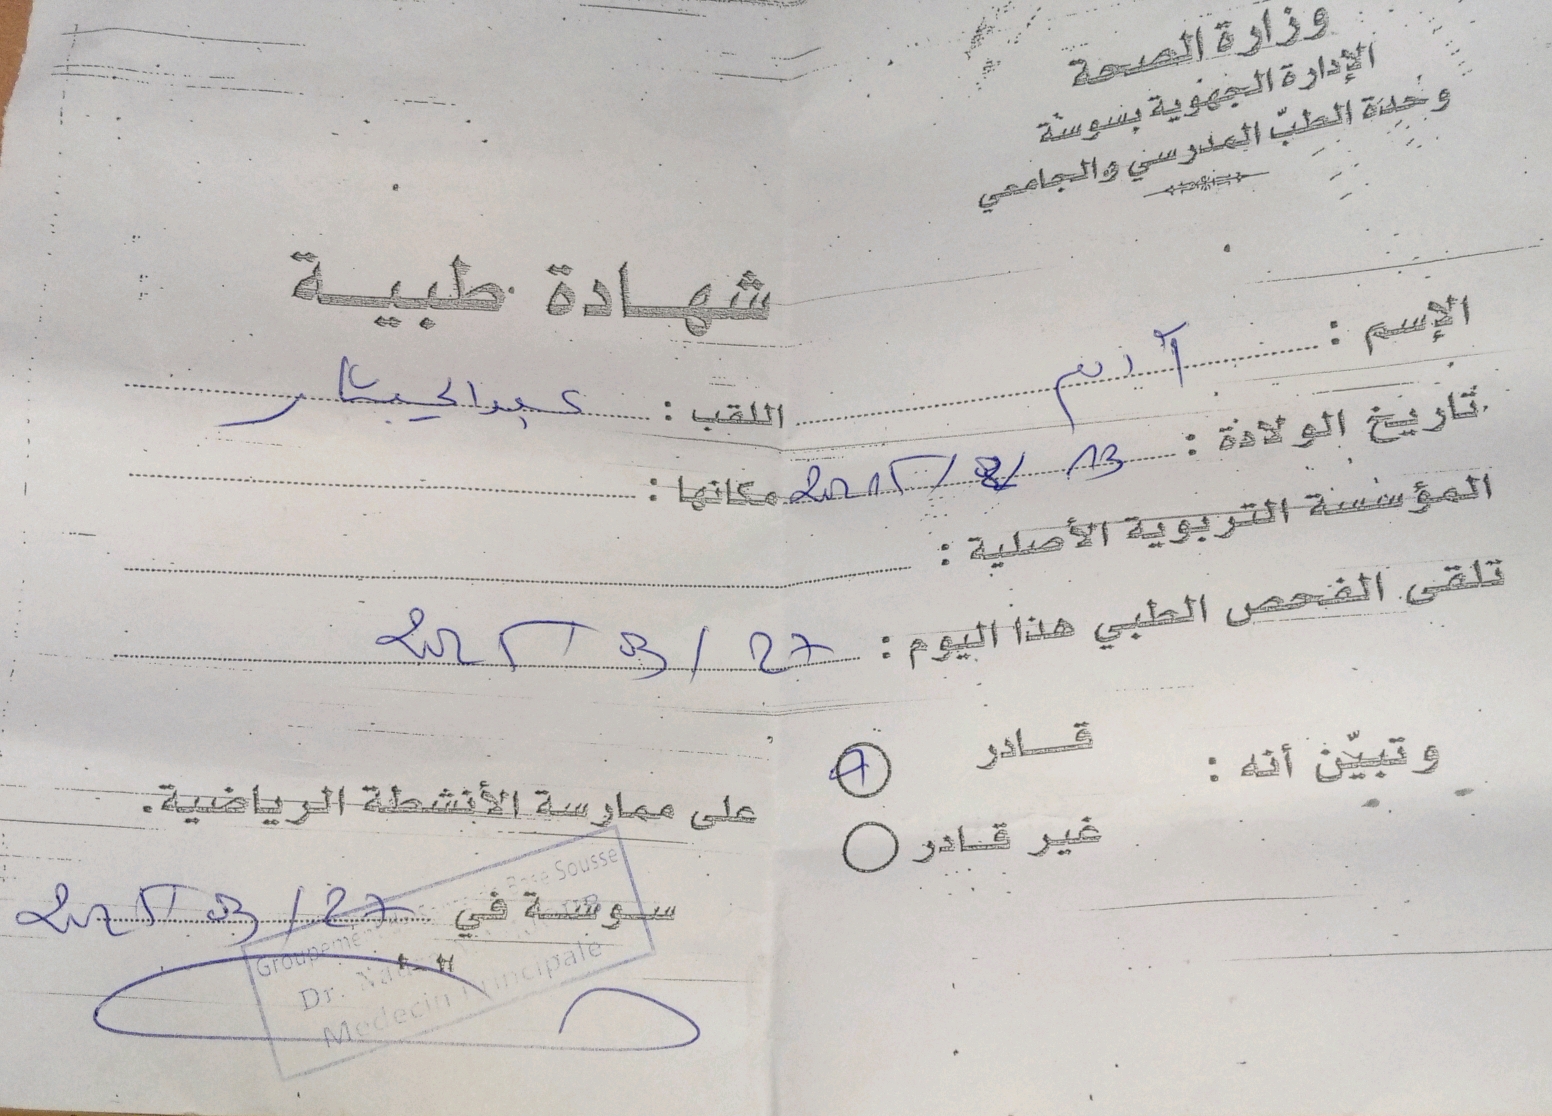 وزارة الصحة
الإدارة الجهوية بسوسة
وحدة الطبّ المدرسي والجامعي
شهادة طبية
الإسم : آدم
اللقب : عبد الستار
تاريخ الولادة : 13 / 8 / 2015
مكانها :
المؤسسة التربوية الأصلية :
تلقى الفحص الطبي هذا اليوم : 27 / 03 / 2025
وتبيّن أنه :
قادر
غير قادر
على ممارسة الأنشطة الرياضية.
سوسة في 27 / 03 / 2025
Groupement Base Sousse
Dr.
Medecin Principale